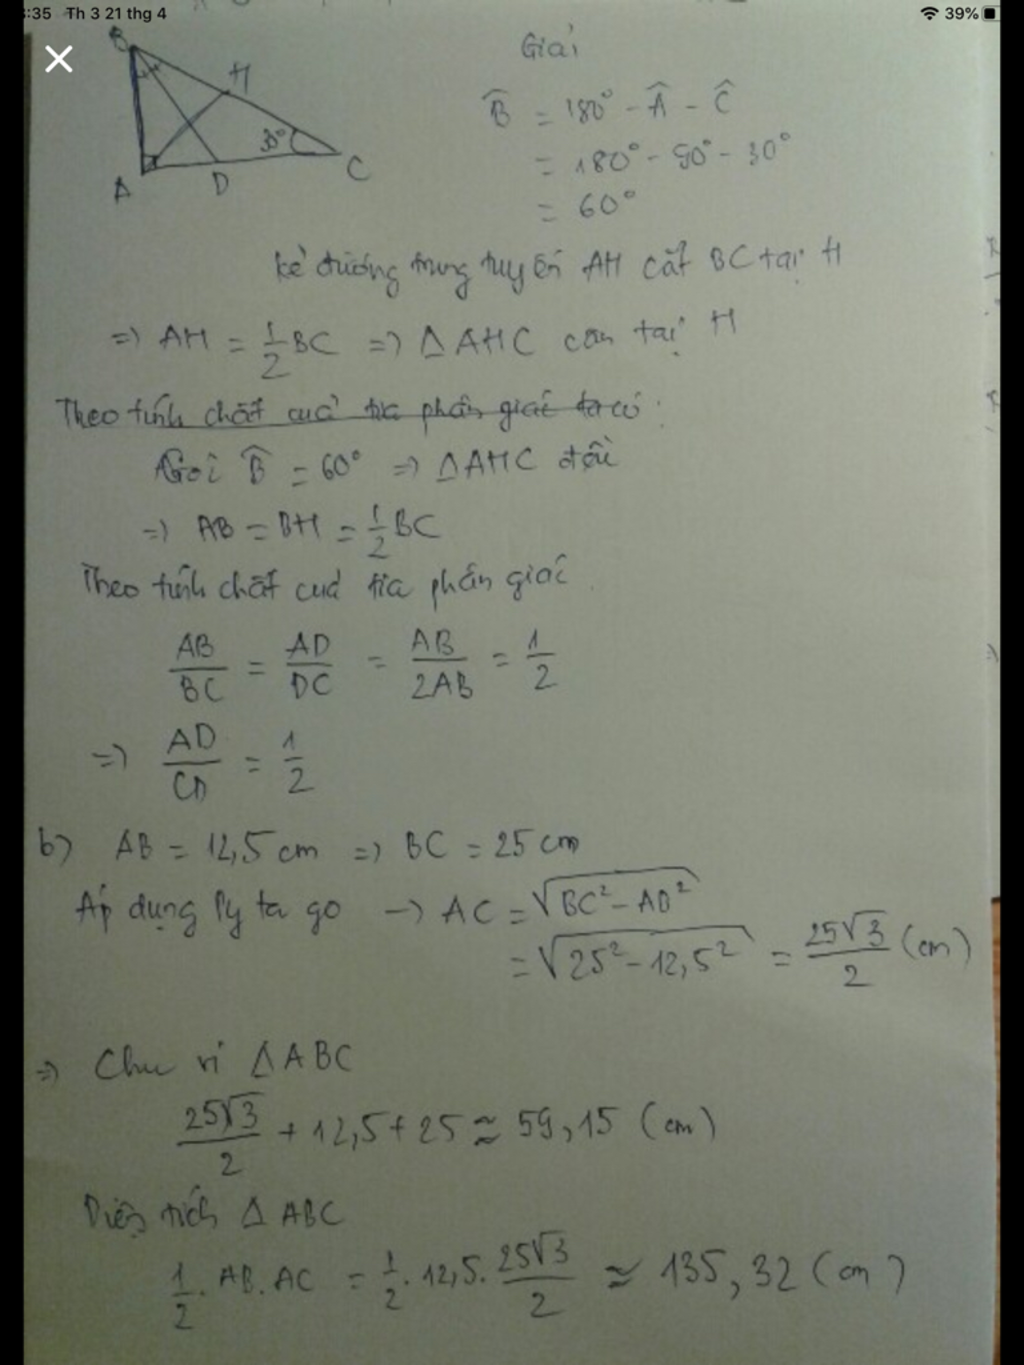 :35 Th 3 21 thg 4
39%
B
H
30°
A
D
C
Giải
B̂ = 180° - Â - Ĉ
= 180° - 90° - 30°
= 60°
kẻ đường trung tuyến AH cắt BC tại H
=> AH = 1/2 BC => Δ AHC cân tại H
Theo tính chất cuả tia phân giác ta có :
B̂ = 60° => Δ AHC đều
=> AB = BH = 1/2 BC
Theo tính chất cuả tia phân giác
AB/BC = AD/DC = AB/2AB = 1/2
=> AD/CD = 1/2
b) AB = 12,5 cm => BC = 25 cm
Áp dụng Py ta go -> AC = √(BC² - AB²)
= √(25² - 12,5²) = 25√3/2 (cm)
=> Chu vi Δ ABC
25√3/2 + 12,5 + 25 ≈ 59,15 (cm)
Diện tích Δ ABC
1/2 . AB . AC = 1/2 . 12,5 . 25√3/2 ≈ 135,32 (cm)